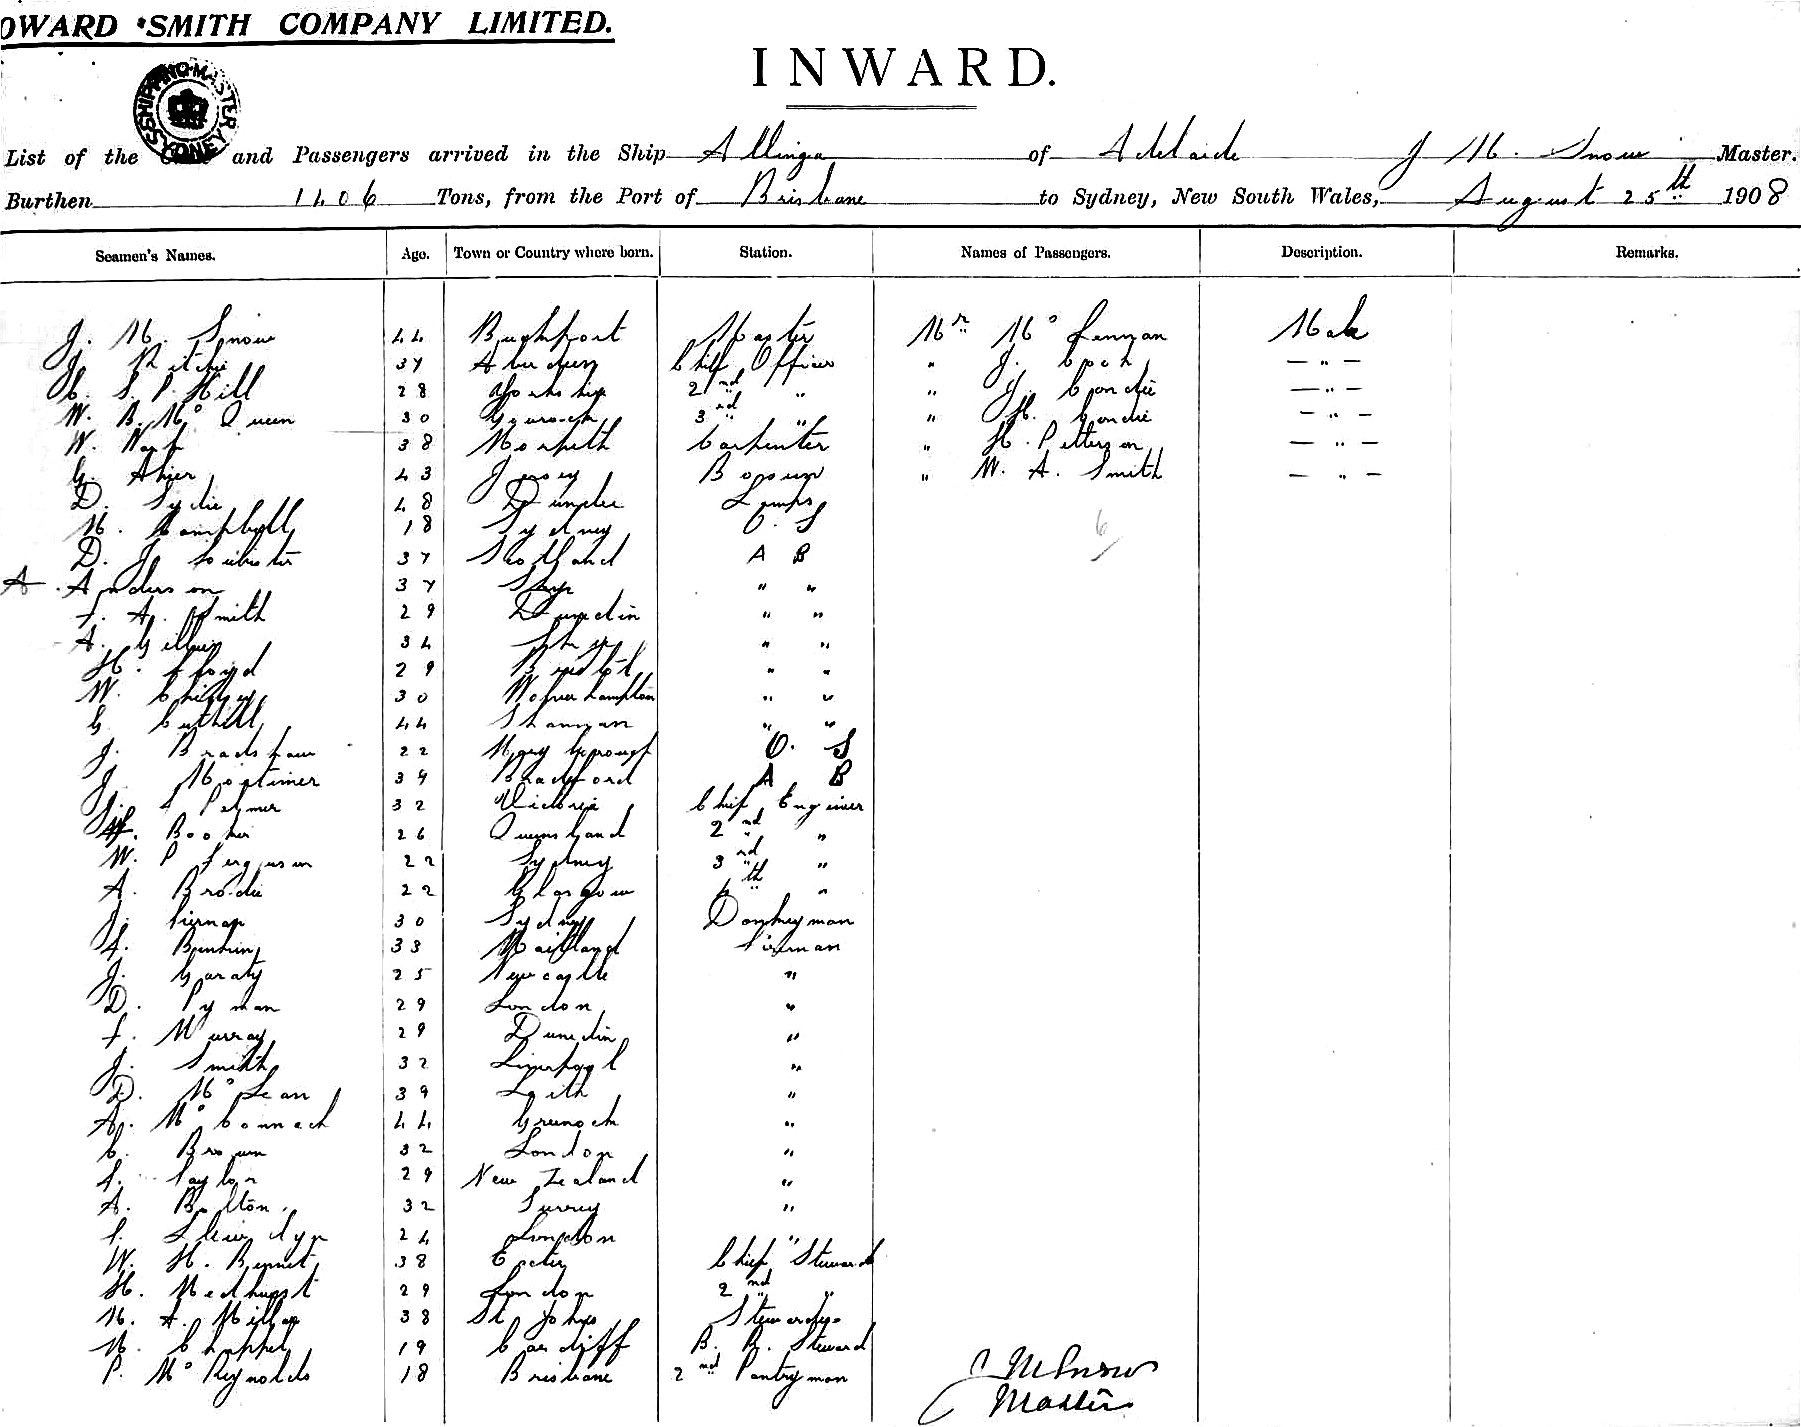 OWARD SMITH COMPANY LIMITED.
INWARD.
SHIPPING MASTER SYDNEY
List of the and Passengers arrived in the Ship Allinga of Adelaide J M. Snow Master.
Burthen 1406 Tons, from the Port of Brisbane to Sydney, New South Wales, August 25th 1908
Seamen's Names. Age. Town or Country where born. Station. Names of Passengers. Description. Remarks.
J. M. Snow 44 Master Mr Mc Lennan Male
J. Ritchie 37 Aberdeen Chief Officer " J. - " -
C. S. P. Hill 28 Yorkship 2nd " " J. Condie - " -
W. B. Mc Queen 30 Gourock 3rd " " H. Condie - " -
W. 38 Morpeth Carpenter " H. Petterson - " -
G. Ahier 43 Jersey Bosun " W. A. Smith - " -
D. Sydie 48 Dundee Lamps
M. Campbell 18 Sydney O. S 6
D. J. 37 Scotland A B
A. Anderson 37 " "
F. A. Smith 29 Dunedin " "
A. Gillies 34 " "
H. Floyd 29 " "
W. 30 Wolverhampton " "
G. Cuthill 44 " "
J. Bradshaw 22 Maryborough O. S
J. Mortimer 39 Bradford A B
Palmer 32 Victoria Chief Engineer
H. Booker 26 Queensland 2nd "
W. P Ferguson 22 Sydney 3rd "
A. Brodie 22 Glasgow 4th "
J. Tiernan 30 Sydney Donkeyman
33 Maitland Fireman
J. Garaty 25 Newcastle "
D. Pyman 29 London "
F. Murray 29 Dunedin "
J. Smith 32 Liverpool "
D. Mc Lean 39 Leith "
A. Mc Connach 44 Greenock "
C. Brown 32 London "
Taylor 29 New Zealand "
A. Bolton. 32 Surrey "
24 London "
W. H. Bennet 38 Exeter Chief Steward
H. Medhurst 29 London 2nd "
M. A. Millar 38 St Johns Stewardess
N. Chappel 19 Cardiff B. R. Steward
P. Mc Reynolds 18 Brisbane 2nd Pantryman
J M Snow
Master